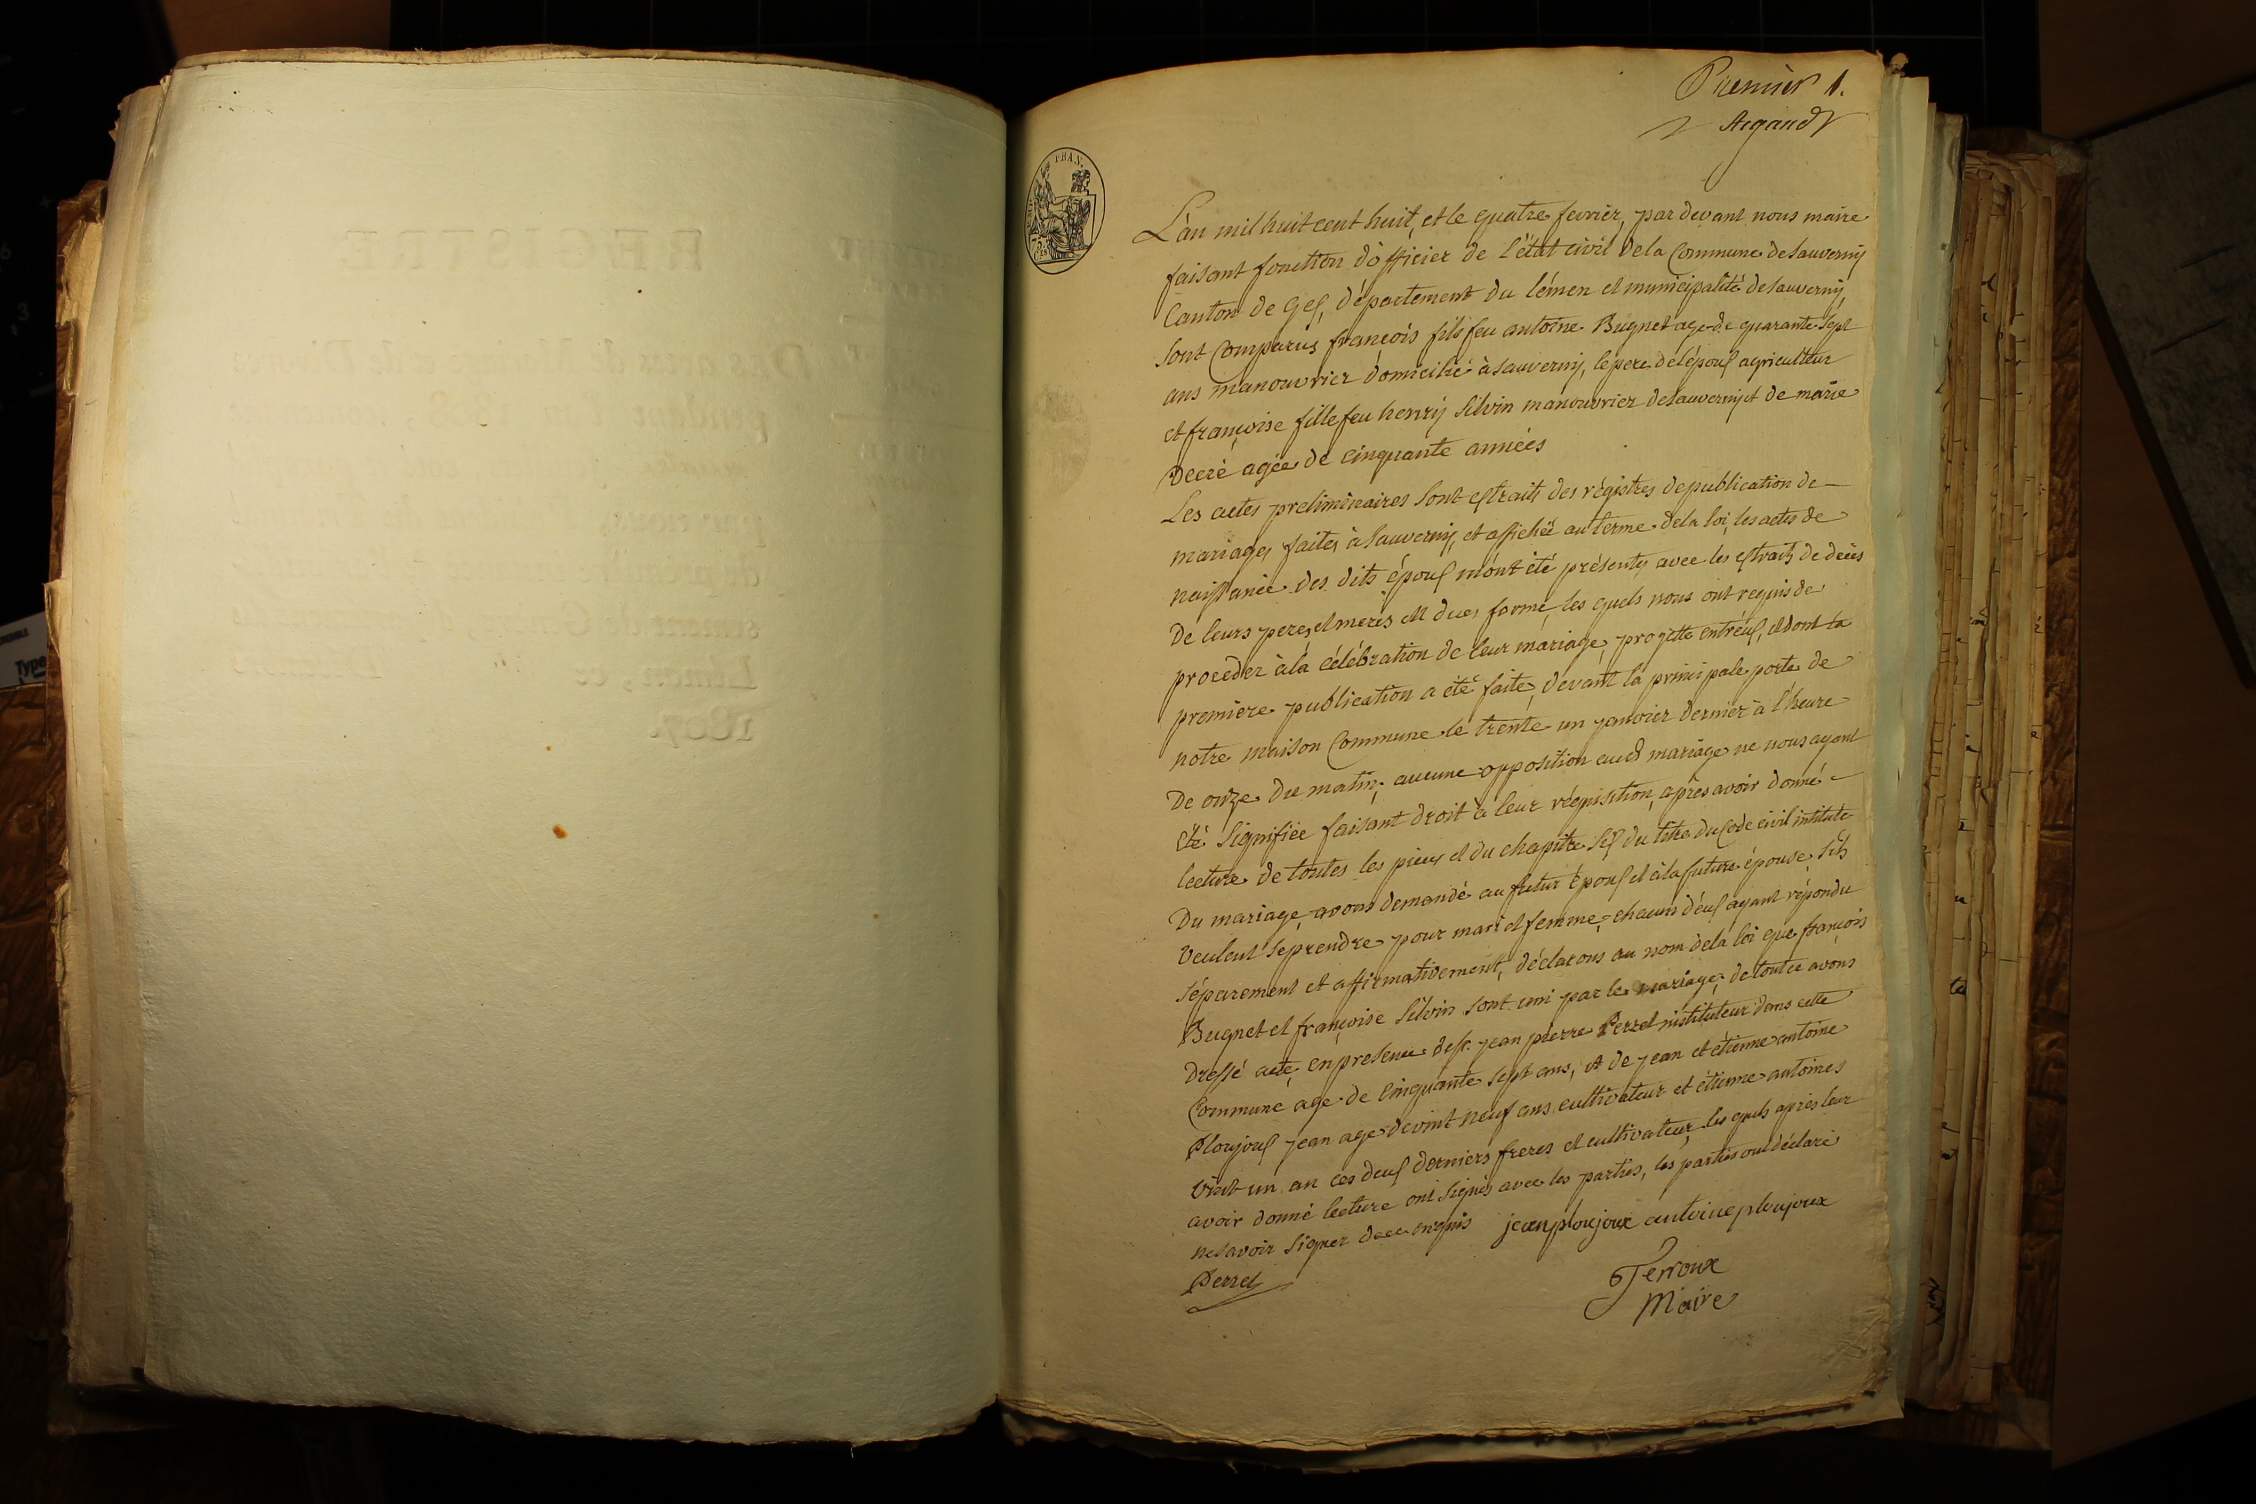 Premier 1.
Argand
REP. FRAN.
L'àn mil huit cent huit, et le quatre fevrier, par devant nous maire
faisant fonction d'officier de l'état civil dela Commune de Sauverny
Canton de Gex, département du lémen et municipalité de Sauverny,
sont Comparus françois fils feu antoine Bugnet age de quarante sept
ans manouvrier domicilié à Sauverny, le pere de lépoux agriculteur
et françoise fille feu henry Silvin manouvrier de Sauverny et de marie
Decré agée de cinquante années
Les actes preliminaires sont extraits des régistres de publication de
mariages faites à Sauverny, et affichée au terme dela loi, les actes de
naissance des dits époux m'ont été présentés avec les extraits de deces
De leurs peres et meres en dues forme, les quels nous ont requis de
proceder àla célébration de leur mariage progette entréux, et dont la
premiere publication a été faite, devant la principale porte de
notre maison Commune le trente un janvier dernier à l'heure
De onze du matin; aucune opposition aud mariage ne nous ayant
été signifiée faisant droit à leur réquisition, après avoir donné
lecture de toutes les pieces et du chapitre six du titre du Code civil intitulé
Du mariage, avons demandé au futur époux et àla future épouse s'ils
veulent se prendre pour mari et femme, chacun d'eux ayant répondu
séparement et affirmativement, déclarons au nom dela loi que françois
Bugnet et françoise Silvin sont uni par le mariage, de tout ce avons
Dressé acte, en presence des sr. jean pierre Perret instituteur dans cette
Commune age de cinquante sept ans, et de jean et étienne antoine
Ploujoux jean age de vint neuf ans cultivateur et étienne antoines
vint un an ces deux derniers freres et cultivateur, les quels après leur
avoir donné lecture ont signés avec les parties, les parties ont déclaré
ne savoir signer de ce enquis jean ploujoux antoine ploujoux
Perret
Perroux
Maire
REGISTRE
1807.